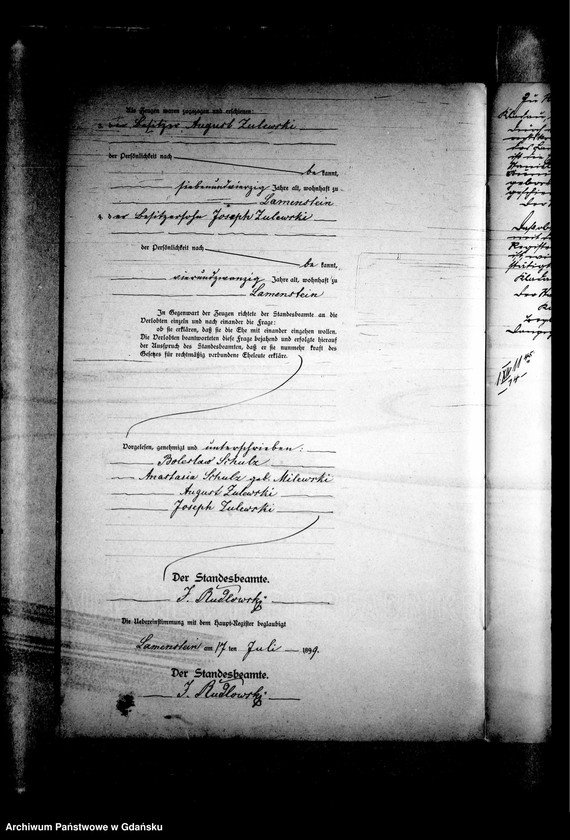 Als Zeugen waren zugezogen und erschienen:
der Besitzer August Zulewski
der Persönlichkeit nach
be kannt,
siebenundvierzig Jahre alt, wohnhaft zu
Lamenstein
der Besitzersohn Joseph Zulewski
der Persönlichkeit nach
be kannt,
vierundzwanzig Jahre alt, wohnhaft zu
Lamenstein
In Gegenwart der Zeugen richtete der Standesbeamte an die
Verlobten einzeln und nach einander die Frage:
ob sie erklären, daß sie die Ehe mit einander eingehen wollen.
Die Verlobten beantworteten diese Frage bejahend und erfolgte hierauf
der Ausspruch des Standesbeamten, daß er sie nunmehr kraft des
Gesetzes für rechtmäßig verbundene Eheleute erkläre.
Vorgelesen, genehmigt und unterschrieben:
Boleslaw Schulz
Anastasia Schulz geb. Milewski
August Zulewski
Joseph Zulewski
Der Standesbeamte.
J. Rudlowski
Die Uebereinstimmung mit dem Haupt-Register beglaubigt
Lamenstein am 17 ten Juli 1899.
Der Standesbeamte.
J. Rudlowski
Archiwum Państwowe w Gdańsku